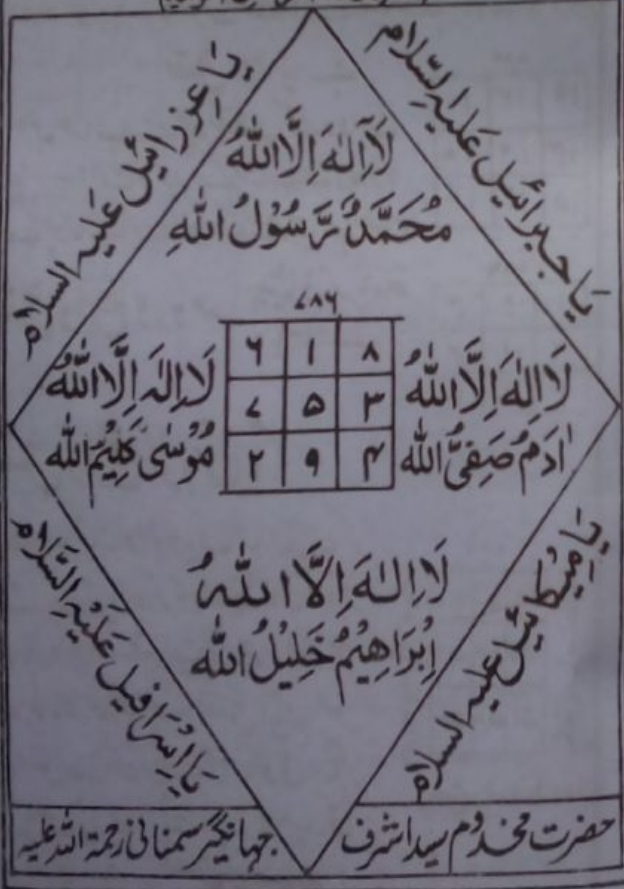 یَا جبرائیل عَلَیہِ السَّلام
یَا عِزرائیل عَلَیہِ السلام
لَآ اِلٰهَ اِلَّا اللهُ
مُحَمَّدٌ رَّسُوْلُ اللهِ
۷۸۶
۸ ۱ ۶
۳ ۵ ۷
۴ ۹ ۲
لَا اِلٰهَ اِلَّا اللهُ
اٰدَمُ صَفِیُّ الله
لَا اِلٰهَ اِلَّا اللهُ
مُوْسٰی کَلِیْمُ الله
لَا اِلٰهَ اِلَّا اللهُ
اِبْرَاهِیْمُ خَلِیْلُ الله
یَا مِیْکائیل علیہ السلام
یَا اِسْرَافیل عَلَیْہِ السَّلام
حضرت مخدوم سید اشرف
جہانگیر سمنانی رحمۃ اللہ علیہ